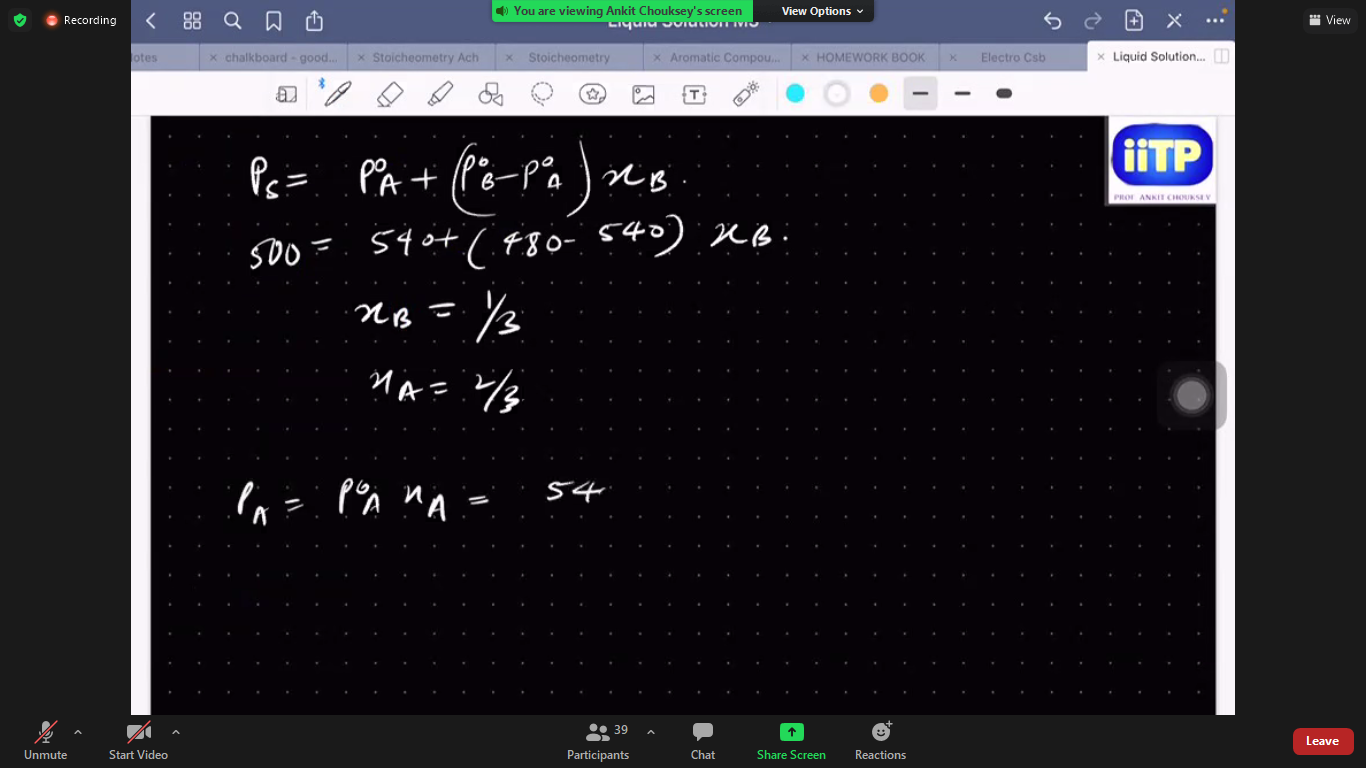 Recording
You are viewing Ankit Chouksey's screen
View Options
View
otes
chalkboard - good...
Stoicheometry Ach
Stoicheometry
Aromatic Compou...
HOMEWORK BOOK
Electro Csb
Liquid Solution...
iiTP
PROF. ANKIT CHOUKSEY
P_S = P°_A + (P°_B - P°_A) x_B.
500 = 540 + (480 - 540) x_B.
x_B = 1/3
x_A = 2/3
P_A = P°_A x_A = 54
Unmute
Start Video
Participants
39
Chat
Share Screen
Reactions
Leave